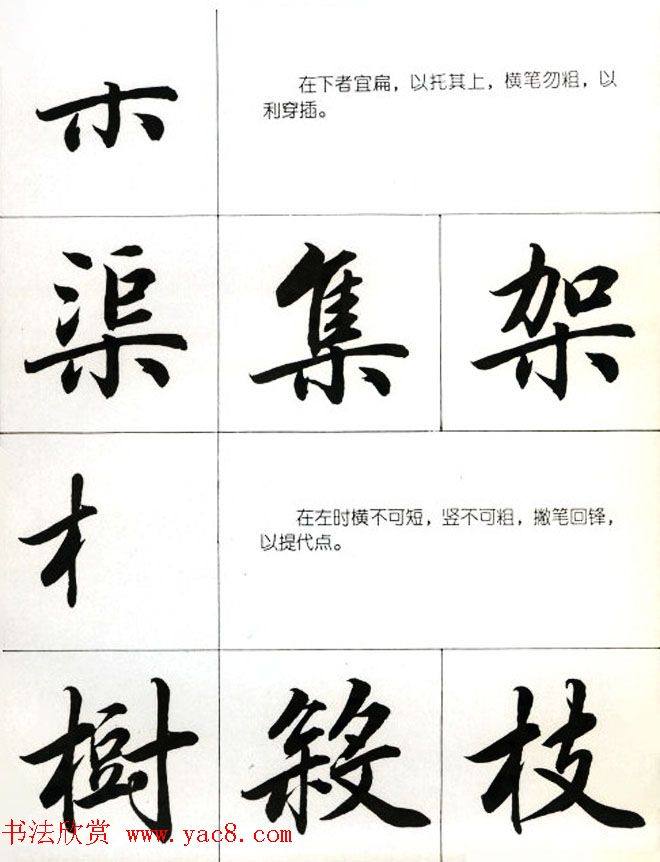 木
在下者宜扁，以托其上，横笔勿粗，以
利穿插。
渠 集 架
木
在左时横不可短，竖不可粗，撇笔回锋，
以提代点。
樹 殺 枝
书法欣赏 www.yac8.com